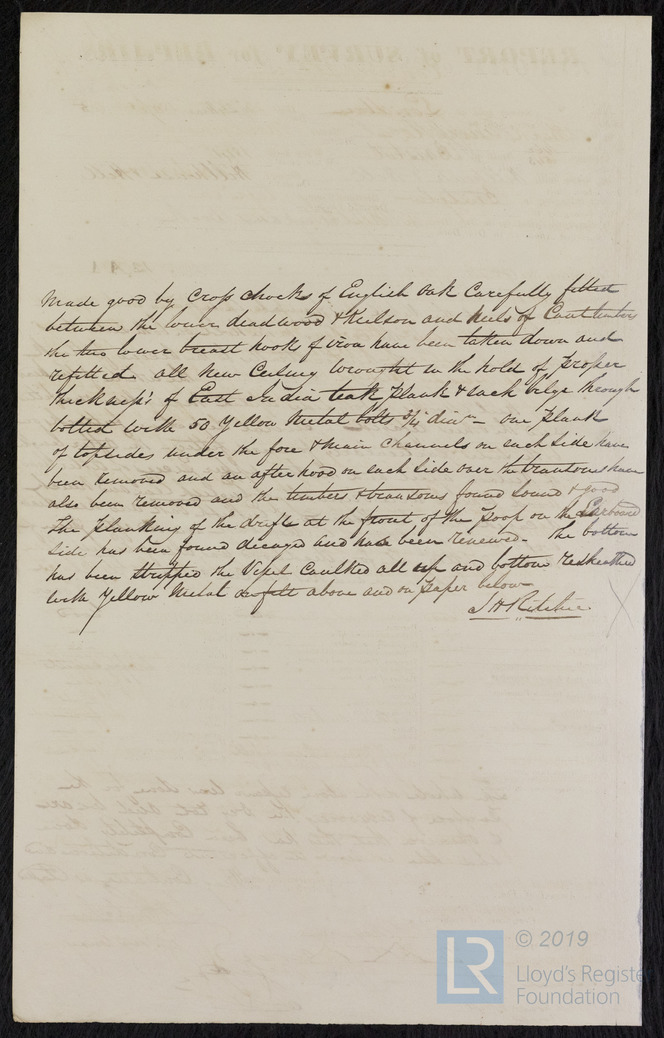 Made good by Cross chocks of English Oak Carefully fitted
between the lower deadwood & Keelson and heels of Cant timbers
the two lower breast hooks of iron have been taken down and
refitted. all New Ceiling wrought in the hold of proper
thickness's of East India teak plank & each bilge through
bolted with 50 Yellow Metal bolts 3/4 diar - one plank
of topsides under the fore & main Channels on each Side have
been removed and an after hood on each Side over the transoms have
also been removed and the timbers & transoms found Sound & good
The planking of the drifts at the front of the poop on the Larboard
Side has been found decayed and have been renewed - The bottom
has been stripped the Vessel Caulked all up and bottom resheathed
with Yellow Metal on felt above and on paper below
J H Ritchie
© 2019
LR
Lloyd's Registe
Foundation